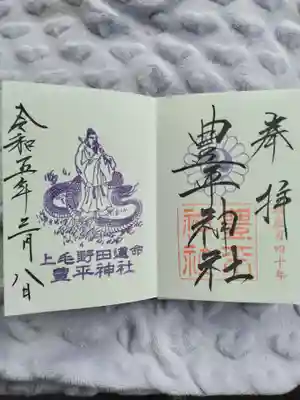 奉拝
豊平神社
上毛野田道命
豊平神社
令和五年三月八日